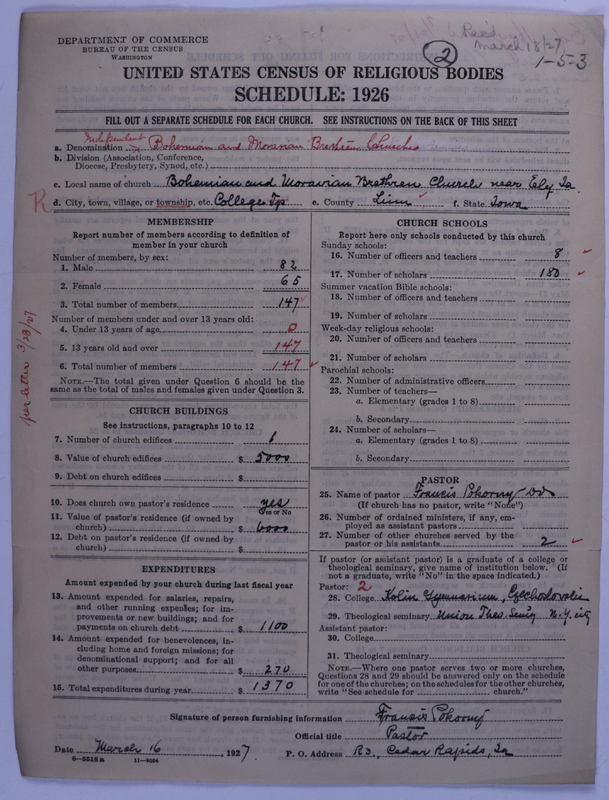 DEPARTMENT OF COMMERCE
BUREAU OF THE CENSUS
WASHINGTON
Rec'd
March 18/27
2
1-5-3
UNITED STATES CENSUS OF RELIGIOUS BODIES
SCHEDULE: 1926
FILL OUT A SEPARATE SCHEDULE FOR EACH CHURCH. SEE INSTRUCTIONS ON THE BACK OF THIS SHEET
Independent
a. Denomination Bohemian and Moravian Brethren Churches
b. Division (Association, Conference,
Diocese, Presbytery, Synod, etc.)
c. Local name of church Bohemian and Moravian Brethren Church near Ely Ia.
R d. City, town, village, or township, etc. College Tp e. County Linn f. State Iowa
per letter 3/23/27
MEMBERSHIP
Report number of members according to definition of
member in your church
Number of members, by sex:
1. Male 82
2. Female 65
3. Total number of members 147
Number of members under and over 13 years old:
4. Under 13 years of age 0
5. 13 years old and over 147
6. Total number of members 147
NOTE.—The total given under Question 6 should be
same as the total of males and females given under Question 3.
CHURCH BUILDINGS
See instructions, paragraphs 10 to 12
7. Number of church edifices 1
8. Value of church edifices $ 5000
9. Debt on church edifices $
10. Does church own pastor's residence yes
Yes or No
11. Value of pastor's residence (if owned by
church) $ 6000
12. Debt on pastor's residence (if owned by
church) $
EXPENDITURES
Amount expended by your church during last fiscal year
13. Amount expended for salaries, repairs,
and other running expenses; for im-
provements or new buildings; and for
payments on church debt $ 1100
14. Amount expended for benevolences, in-
cluding home and foreign missions; for
denominational support; and for all
other purposes $ 270
15. Total expenditures during year $ 1370
CHURCH SCHOOLS
Report here only schools conducted by this church
Sunday schools:
16. Number of officers and teachers 8
17. Number of scholars 180
Summer vacation Bible schools:
18. Number of officers and teachers
19. Number of scholars
Week-day religious schools:
20. Number of officers and teachers
21. Number of scholars
Parochial schools:
22. Number of administrative officers
23. Number of teachers—
a. Elementary (grades 1 to 8)
b. Secondary
24. Number of scholars—
a. Elementary (grades 1 to 8)
b. Secondary
PASTOR
25. Name of pastor Francis Pokorny DD
(If church has no pastor, write "None")
26. Number of ordained ministers, if any, em-
ployed as assistant pastors
27. Number of other churches served by the
pastor or his assistants 2
If pastor (or assistant pastor) is a graduate of a college or
theological seminary, give name of institution below. (If
not a graduate, write "No" in the space indicated.)
Pastor: 2
28. College Kolin Gymnasium, Czechoslovakia
29. Theological seminary Union Theo. Semy N.Y. city
Assistant pastor:
30. College
31. Theological seminary
NOTE.—Where one pastor serves two or more churches,
Questions 28 and 29 should be answered only on the schedule
for one of the churches; on the schedules for the other churches,
write "See schedule for church."
Signature of person furnishing information Francis Pokorny
Official title Pastor
Date March 16, 1927 P. O. Address R3, Cedar Rapids, Ia
8—5518a 11—9024